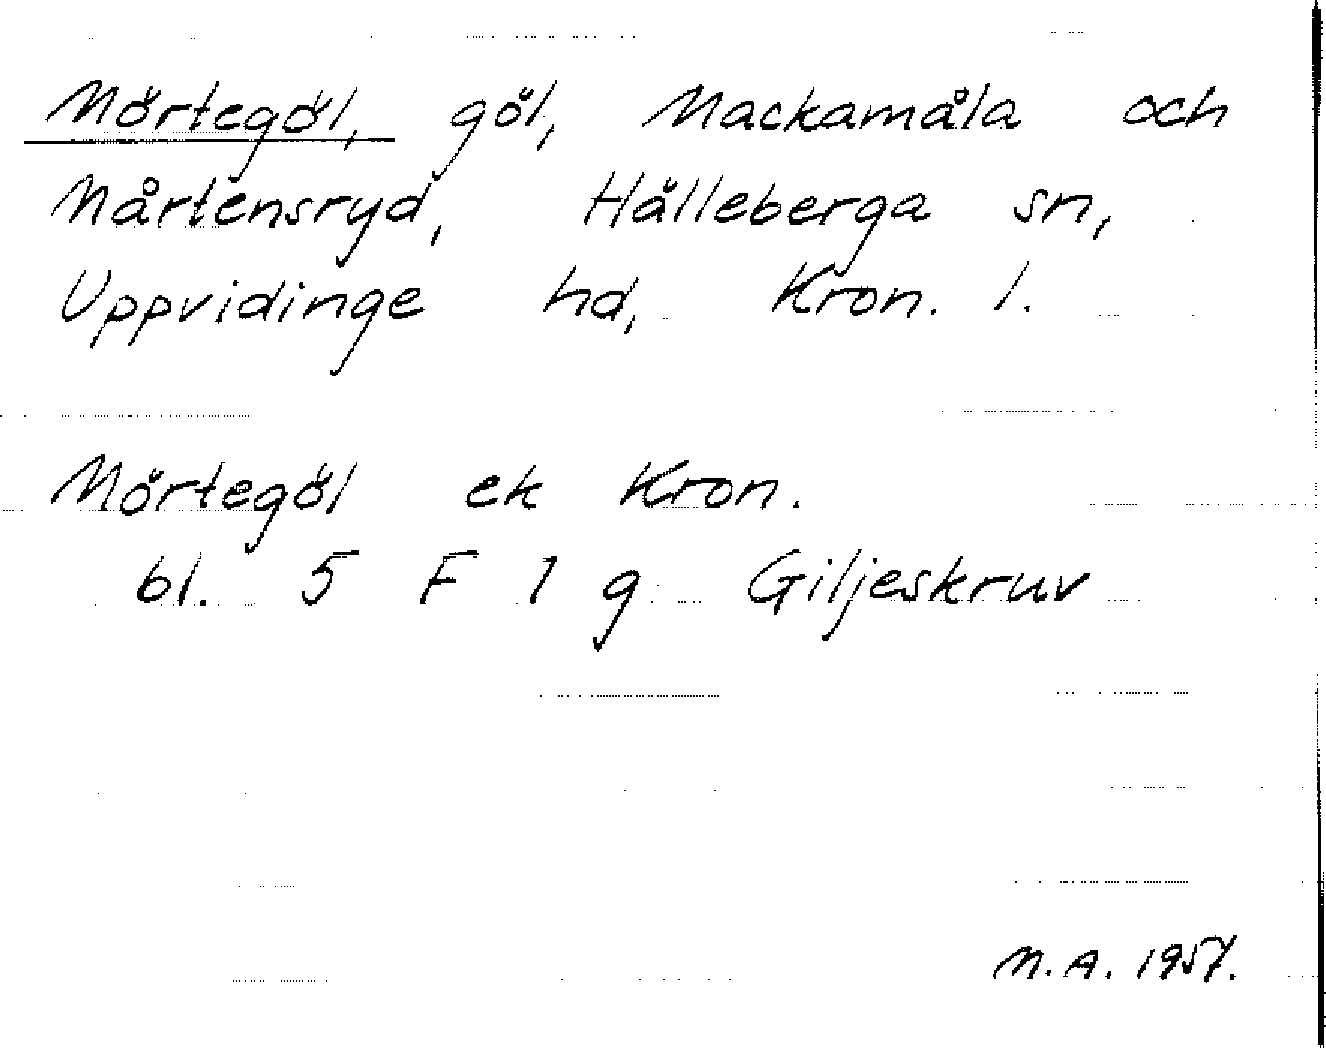 Mörtegöl, göl, Mackamåla och
Mårtensryd, Hälleberga sn,
Uppvidinge hd, Kron. l.
Mörtegöl ek Kron.
bl. 5 F 1 g Giljeskruv
M.A. 1957.